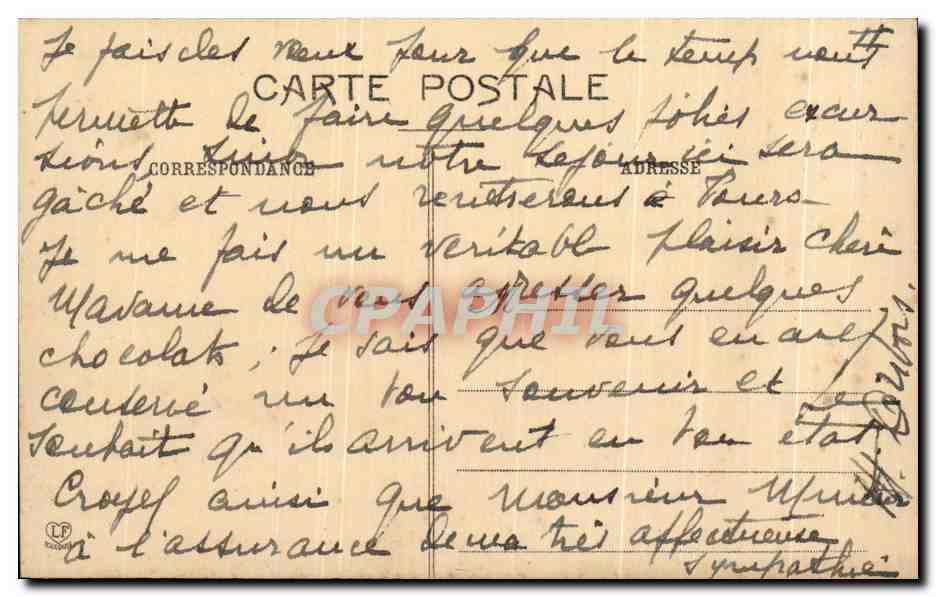 Je fais des vœux pour que le temp vous
CARTE POSTALE
permette de faire quelques jolies excur
sions sinon notre sejour ici sera
CORRESPONDANCE
ADRESSE
gâché et nous rentrerons à Tours
Je me fais un veritable plaisir chere
Madame de vous adresser quelques
CPAPHIL
chocolats ; Je sais que vous en avez
conservé un bon souvenir et je
souhait qu'ils arrivent en bon état.
Croyez ainsi que Monsieur
à l'assurance de ma très affectueuse
sympathie
LF